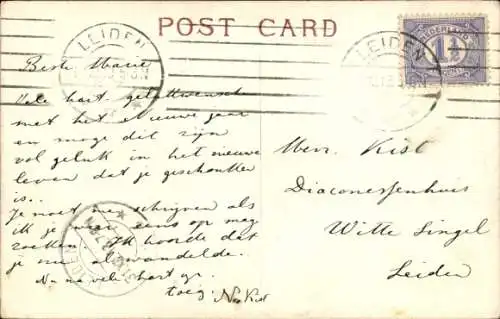 POST CARD
LEIDEN
LEIDEN
NEDERLAND
1½
Beste Marie
Vele hart. gelukwensch
met het Nieuwe jaar
en moge dit zijn
vol geluk in het nieuwe
leven dat je geschonken
is.
Je moet me schrijven als
ik je weer eens op mag
zoeken. Ik hoorde dat
je al wandelde.
Na vele hart. gr.
toeg.
Mevr. Kist
Diaconessenhuis
Witte Singel
Leiden